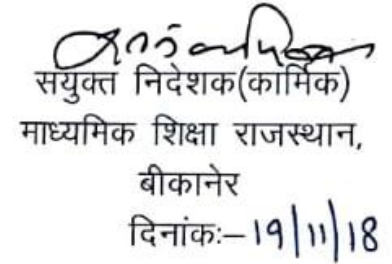 सयुक्त निदेशक(कार्मिक)
माध्यमिक शिक्षा राजस्थान,
बीकानेर
दिनांकः–19/11/18